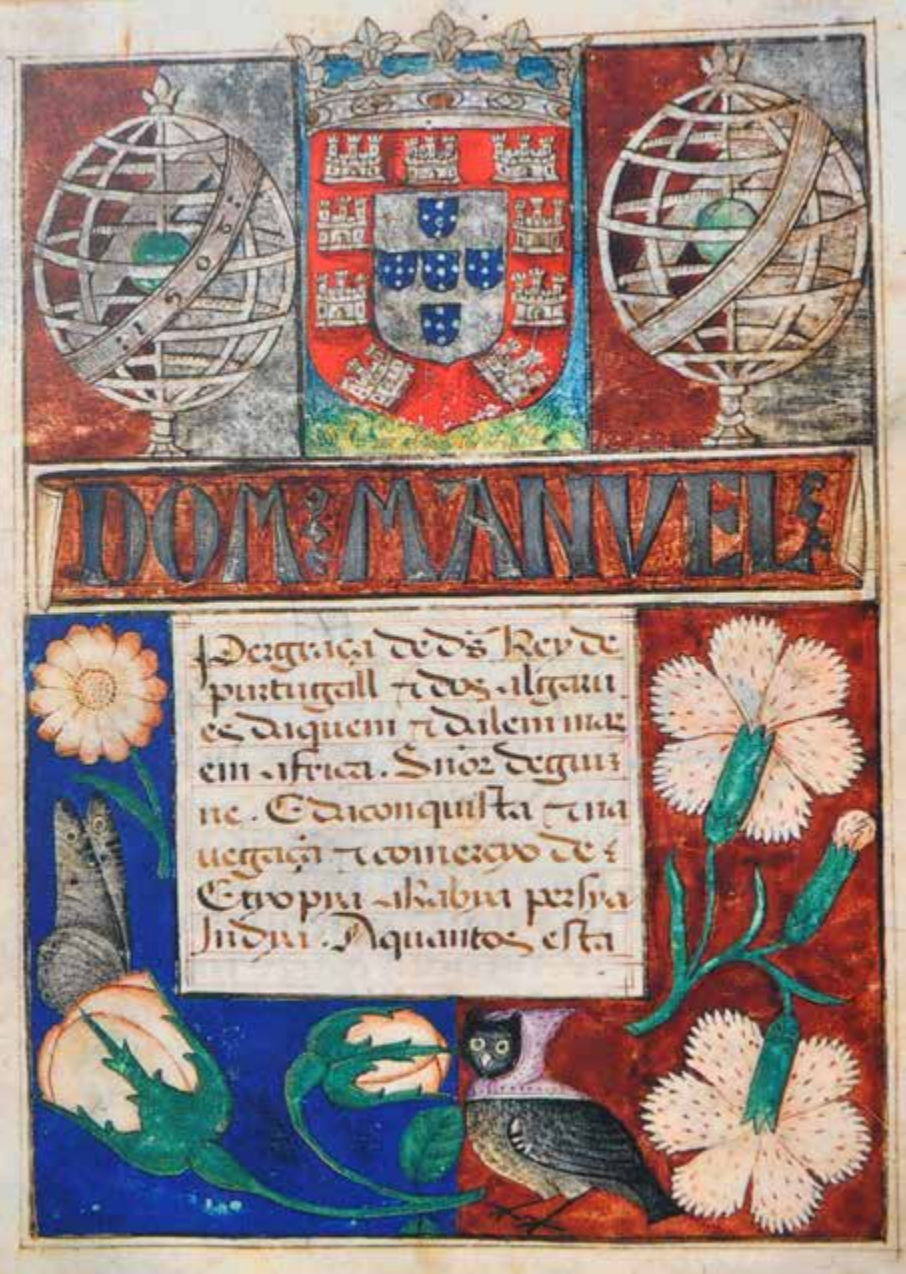 : 1506 :
DOM : MANVEL :
Pergraça de ds Rey de
purtugall ⁊ dos algaru
es daquem ⁊ dalem mar
em africa . Snõr deguin
ne . E da conquista ⁊ na
uegaçã ⁊ comercyo de :
Etyopia arabia persya
Jndia . Aquantos esta